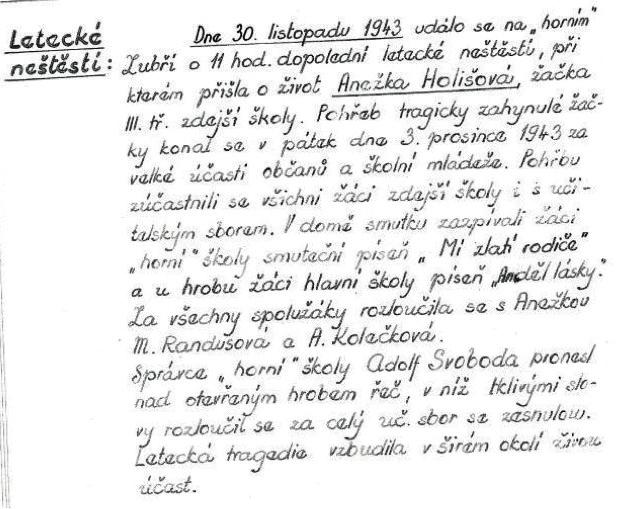 Letecké
neštěstí:
Dne 30. listopadu 1943 událo se na „horním“
Zubří o 11 hod. dopolední letecké neštěstí, při
kterém přišla o život Anežka Holišová, žačka
III. tř. zdejší školy. Pohřeb tragicky zahynulé žač-
ky konal se v pátek dne 3. prosince 1943 za
velké účasti občanů a školní mládeže. Pohřbu
zúčastnili se všichni žáci zdejší školy i s uči-
telským sborem. V domě smutku zazpívali žáci
„horní“ školy smuteční píseň „Mí zlatí rodiče“
a u hrobu žáci hlavní školy píseň „Anděl lásky.“
Za všechny spolužáky rozloučila se s Anežkou
M. Randusová a A. Kolečková.
Správce „horní“ školy Adolf Svoboda pronesl
nad otevřeným hrobem řeč, v níž tklivými slo-
vy rozloučil se za celý uč. sbor se zesnulou.
Letecká tragedie vzbudila v širém okolí živou
účast.